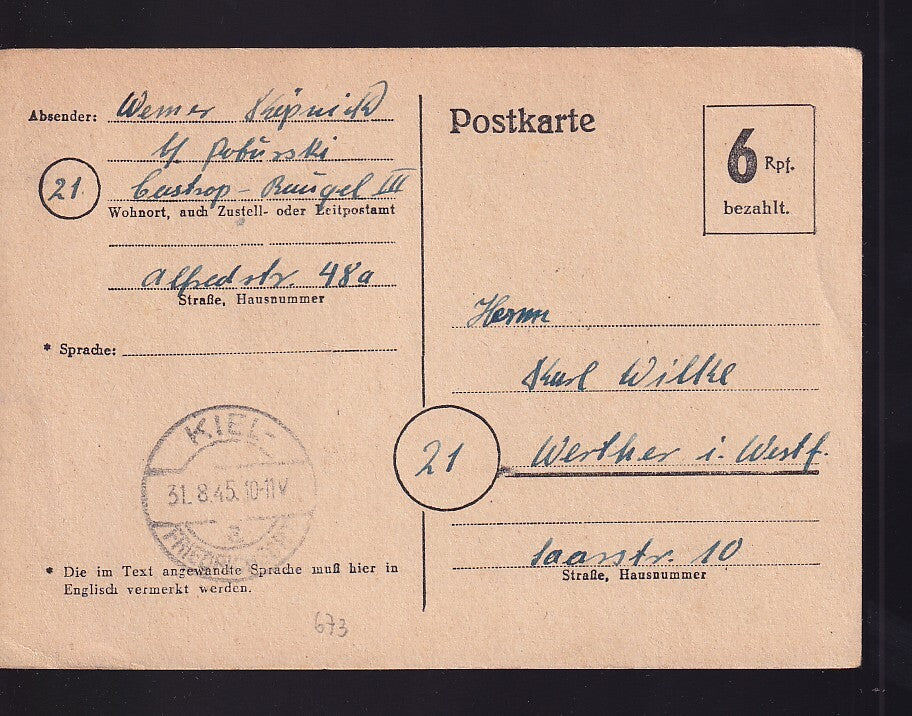 Absender: Werner Köpnick
b/ Poburski
21 Castrop-Rauxel III
Wohnort, auch Zustell- oder Leitpostamt
Alfredstr. 48a
Straße, Hausnummer
* Sprache:
KIEL-
31.8.45.10-11V
a
* Die im Text angewandte Sprache muß hier in
Englisch vermerkt werden.
673
Postkarte
6 Rpf.
bezahlt.
Herrn
Karl Wilke
21 Werther i. Westf.
Saarstr. 10
Straße, Hausnummer